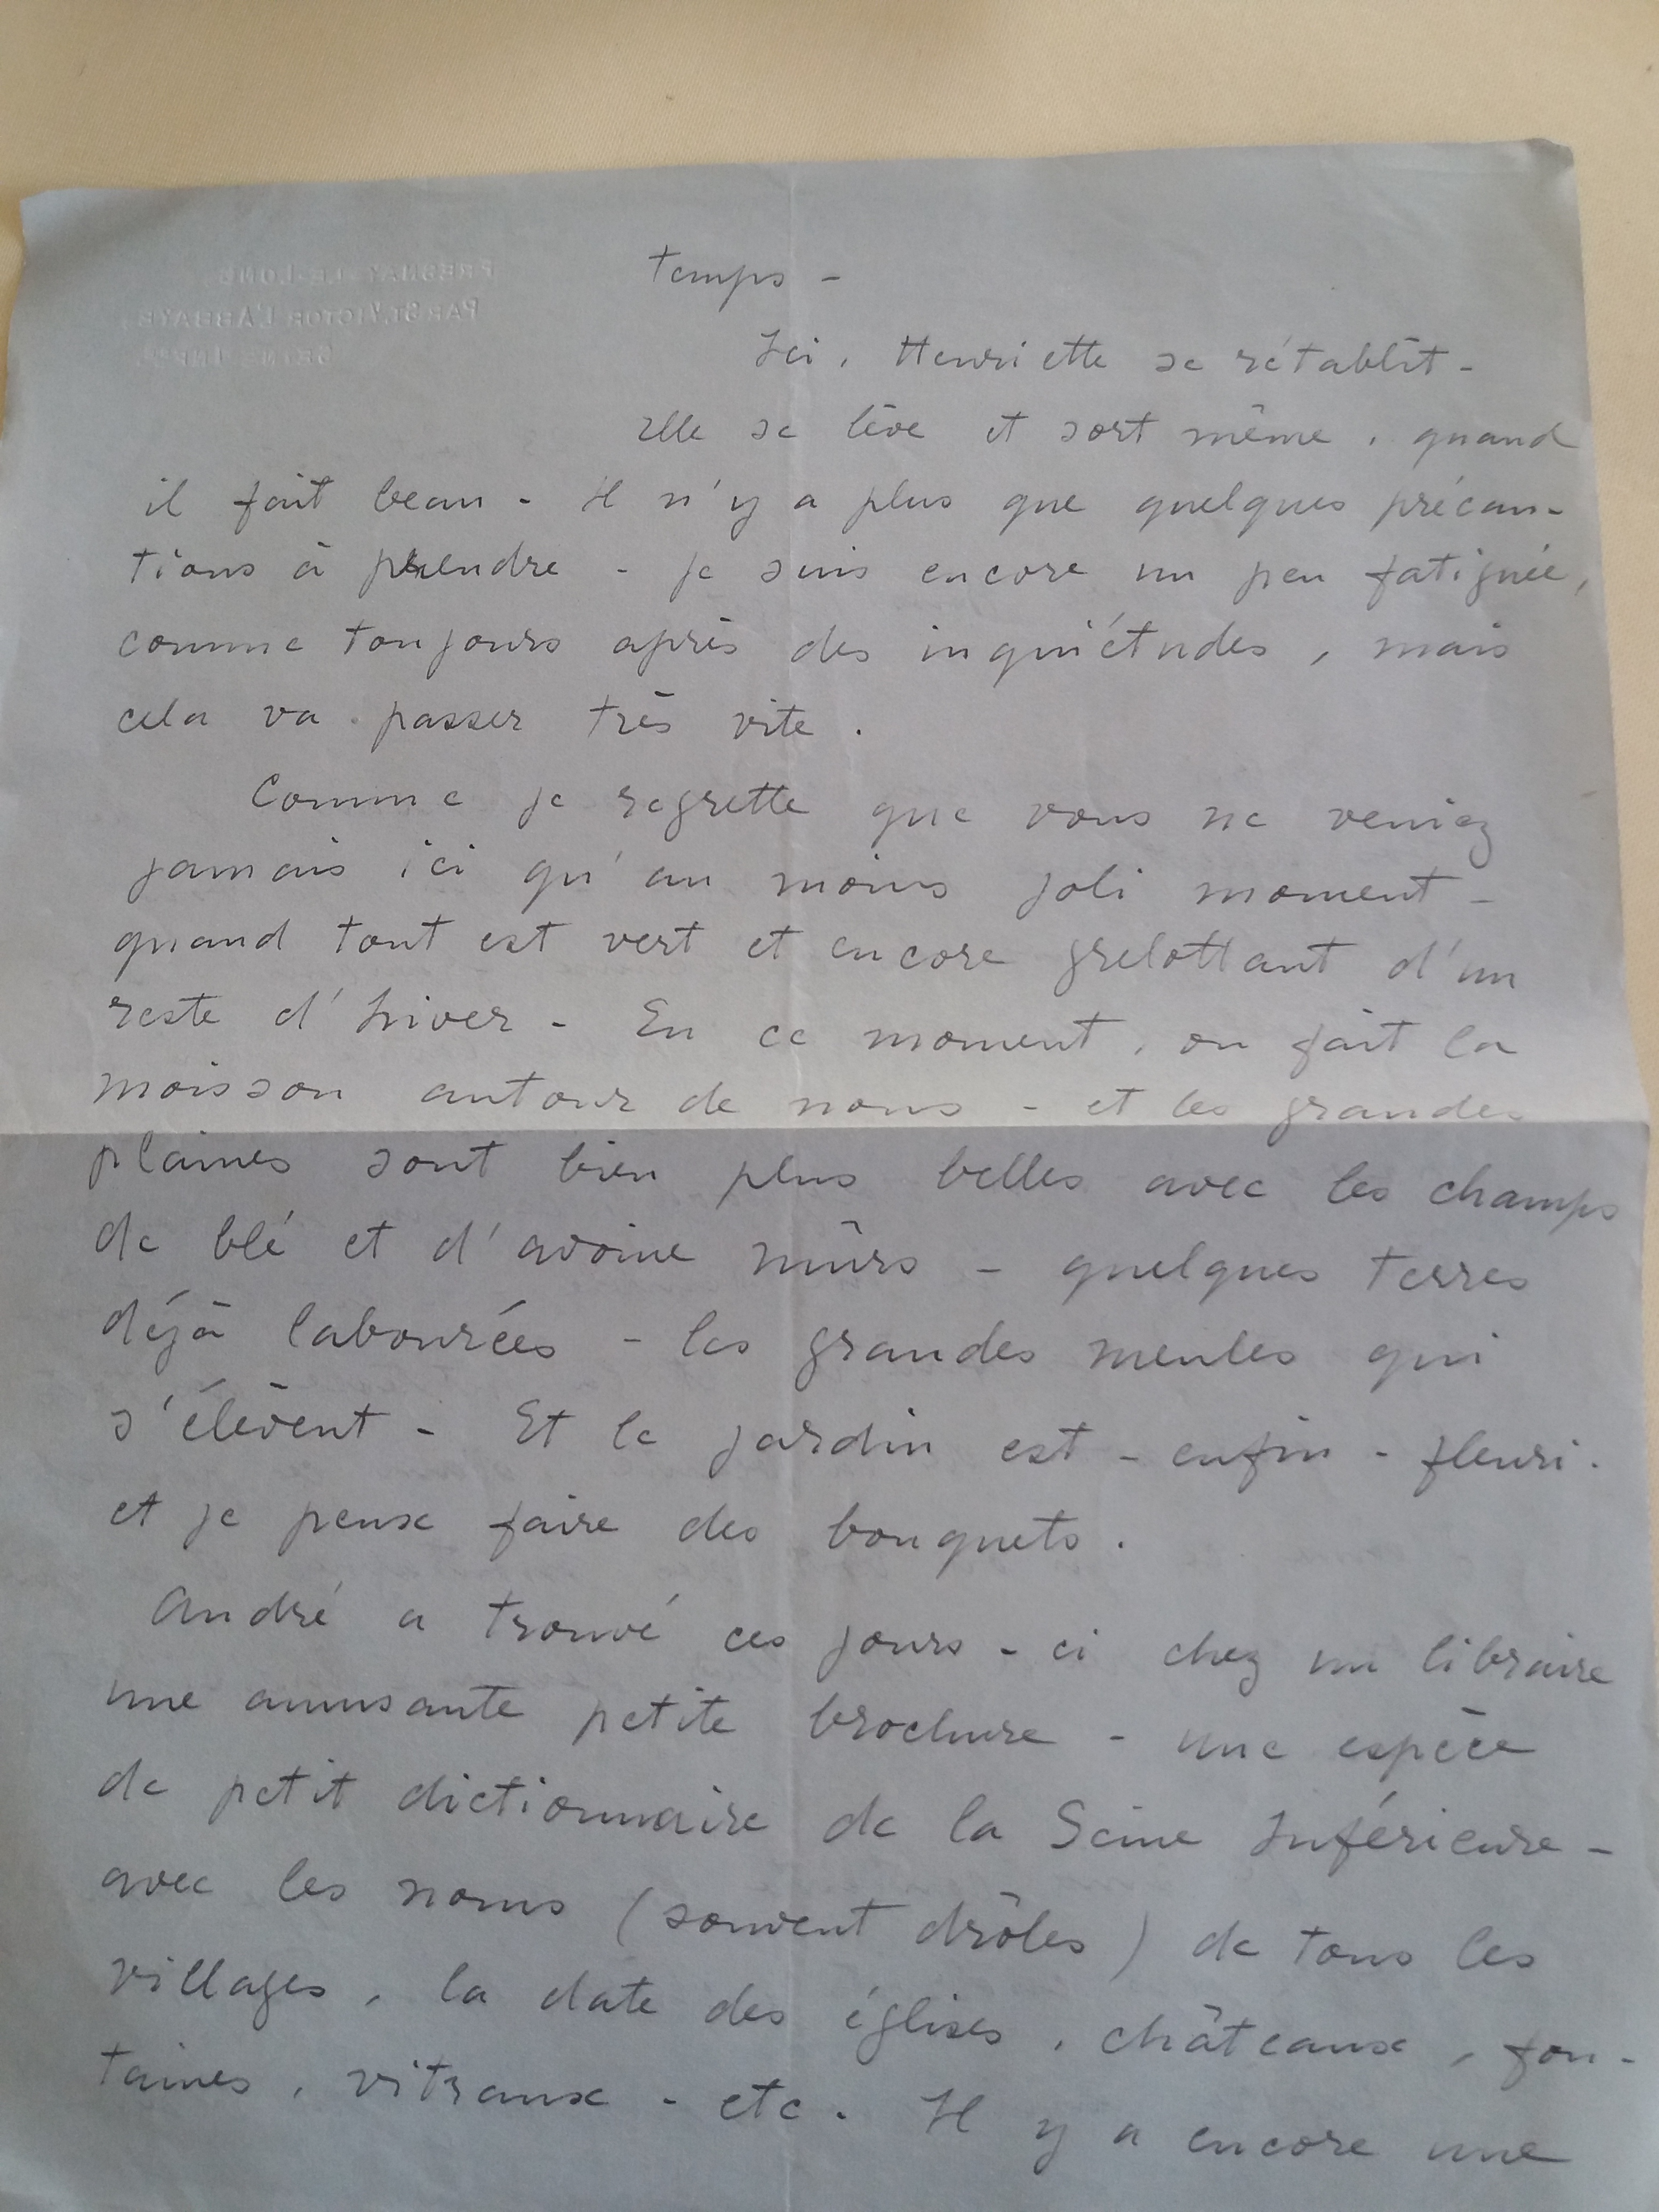 FRESNAY-LE-LONG
PAR ST. VICTOR L'ABBAYE,
SEINE INFRE.
temps -
Ici, Henriette se rétablit -
Elle se lève et sort même, quand
il fait beau - Il n'y a plus que quelques précau-
tions à prendre - je suis encore un peu fatiguée,
comme toujours après des inquiétudes, mais
cela va passer très vite.
Comme je regrette que vous ne veniez
jamais ici qu'au moins joli moment -
quand tout est vert et encore grelottant d'un
reste d'hiver - En ce moment, on fait la
moisson autour de nous - et les grandes
plaines sont bien plus belles avec les champs
de blé et d'avoine mûrs - quelques terres
déjà labourées - les grandes meules qui
s'élèvent - Et le jardin est - enfin - fleuri.
et je peux faire des bouquets.
André a trouvé ces jours-ci chez un libraire
une amusante petite brochure - une espèce
de petit dictionnaire de la Seine Inférieure -
avec les noms (souvent drôles) de tous les
villages, la date des églises, châteaux, fon-
taines, vitraux - etc. Il y a encore une